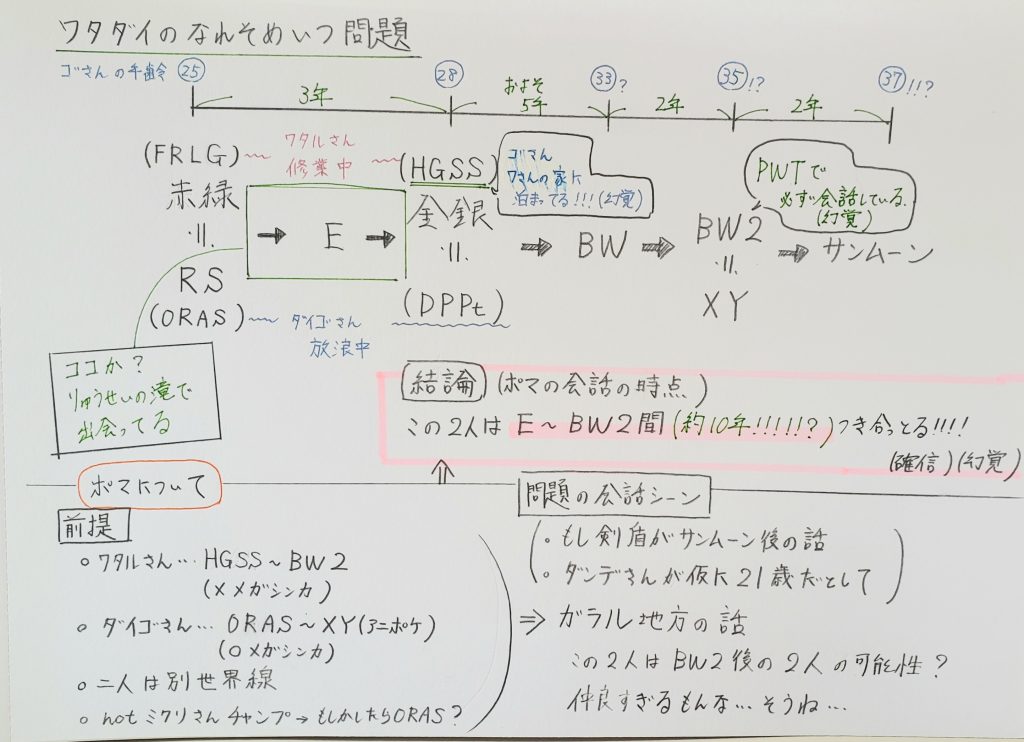 ワタダイのなれそめいつ問題
ゴさんの年齢 25 28 33? 35!? 37!!?
3年 およそ5年 2年 2年
(FRLG) ワタルさん修業中 (HGSS)
赤緑 金銀
=
RS
(ORAS) ダイゴさん放浪中 (DPPt)
→ E → → BW → BW2 → サンムーン
=
XY
ゴさん
ワさんの家に
泊まってる!!!(幻覚)
PWTで
必ず会話している.
(幻覚)
ココか?
りゅうせいの滝で
出会ってる
結論 (ポマの会話の時点)
この2人は E~BW2間(約10年!!!!!?)つき合っとる!!!!
(確信)(幻覚)
ポマについて
前提
○ワタルさん… HGSS~BW2
(×メガシンカ)
○ダイゴさん… ORAS~XY(アニポケ)
(○メガシンカ)
○二人は別世界線
○not ミクリさんチャンプ→もしかしたらORAS?
問題の会話シーン
○もし剣盾がサンムーン後の話
○ダンデさんが仮に21歳だとして
⇒ ガラル地方の話
この2人はBW2後の2人の可能性?
仲良すぎるもんな…そうね…